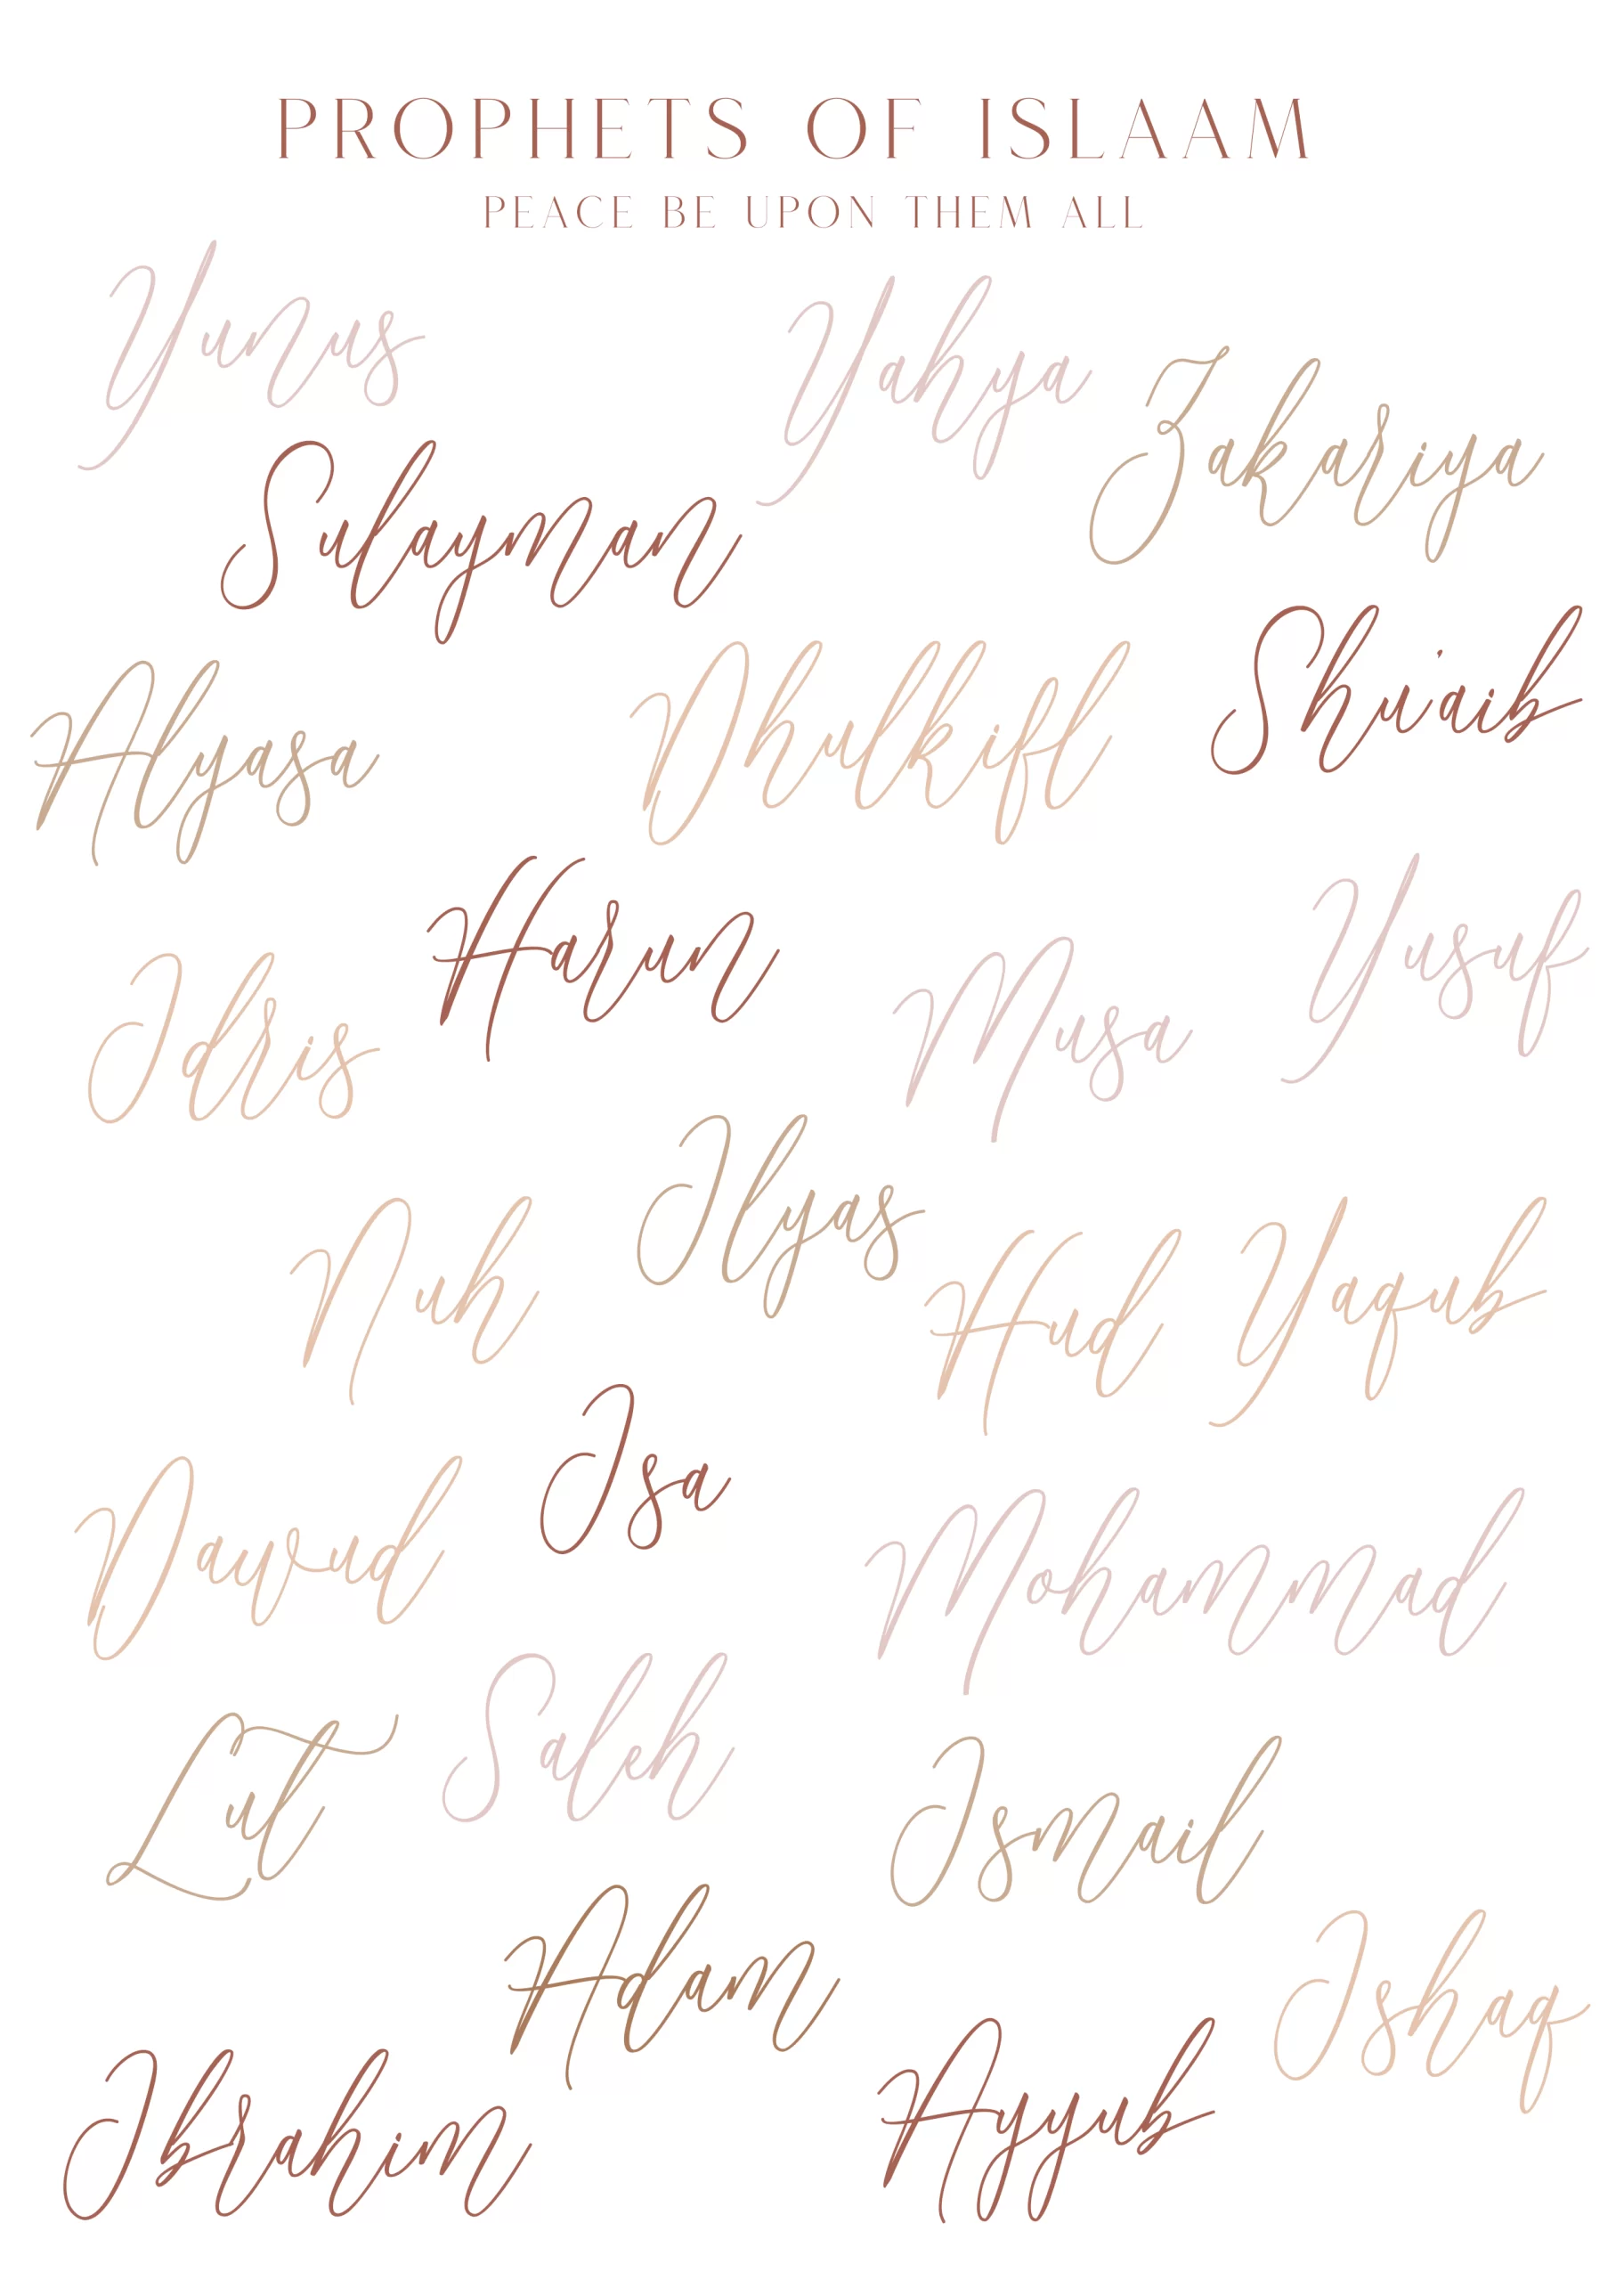 PROPHETS OF ISLAAM
PEACE BE UPON THEM ALL
Yunus
Yahya
Zakariya
Sulayman
Shuiaib
Alyasa
Dhulkifl
Harun
Yusuf
Idris
Musa
Ilyas
Nuh
Hud
Yaqub
Isa
Dawud
Mohammad
Saleh
Lut
Ismail
Adam
Ishaq
Ibrahim
Ayyub